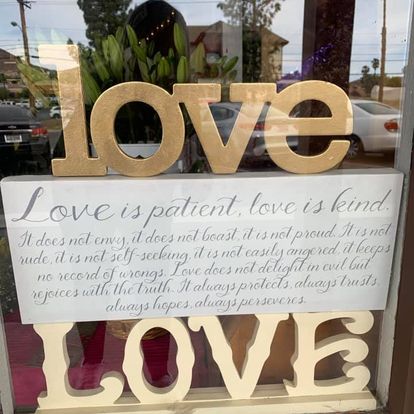 love
Love is patient, love is kind.
It does not envy, it does not boast, it is not proud. It is not
rude, it is not self-seeking, it is not easily angered, it keeps
no record of wrongs. Love does not delight in evil but
rejoices with the truth. It always protects, always trusts,
always hopes, always perseveres.
LOVE